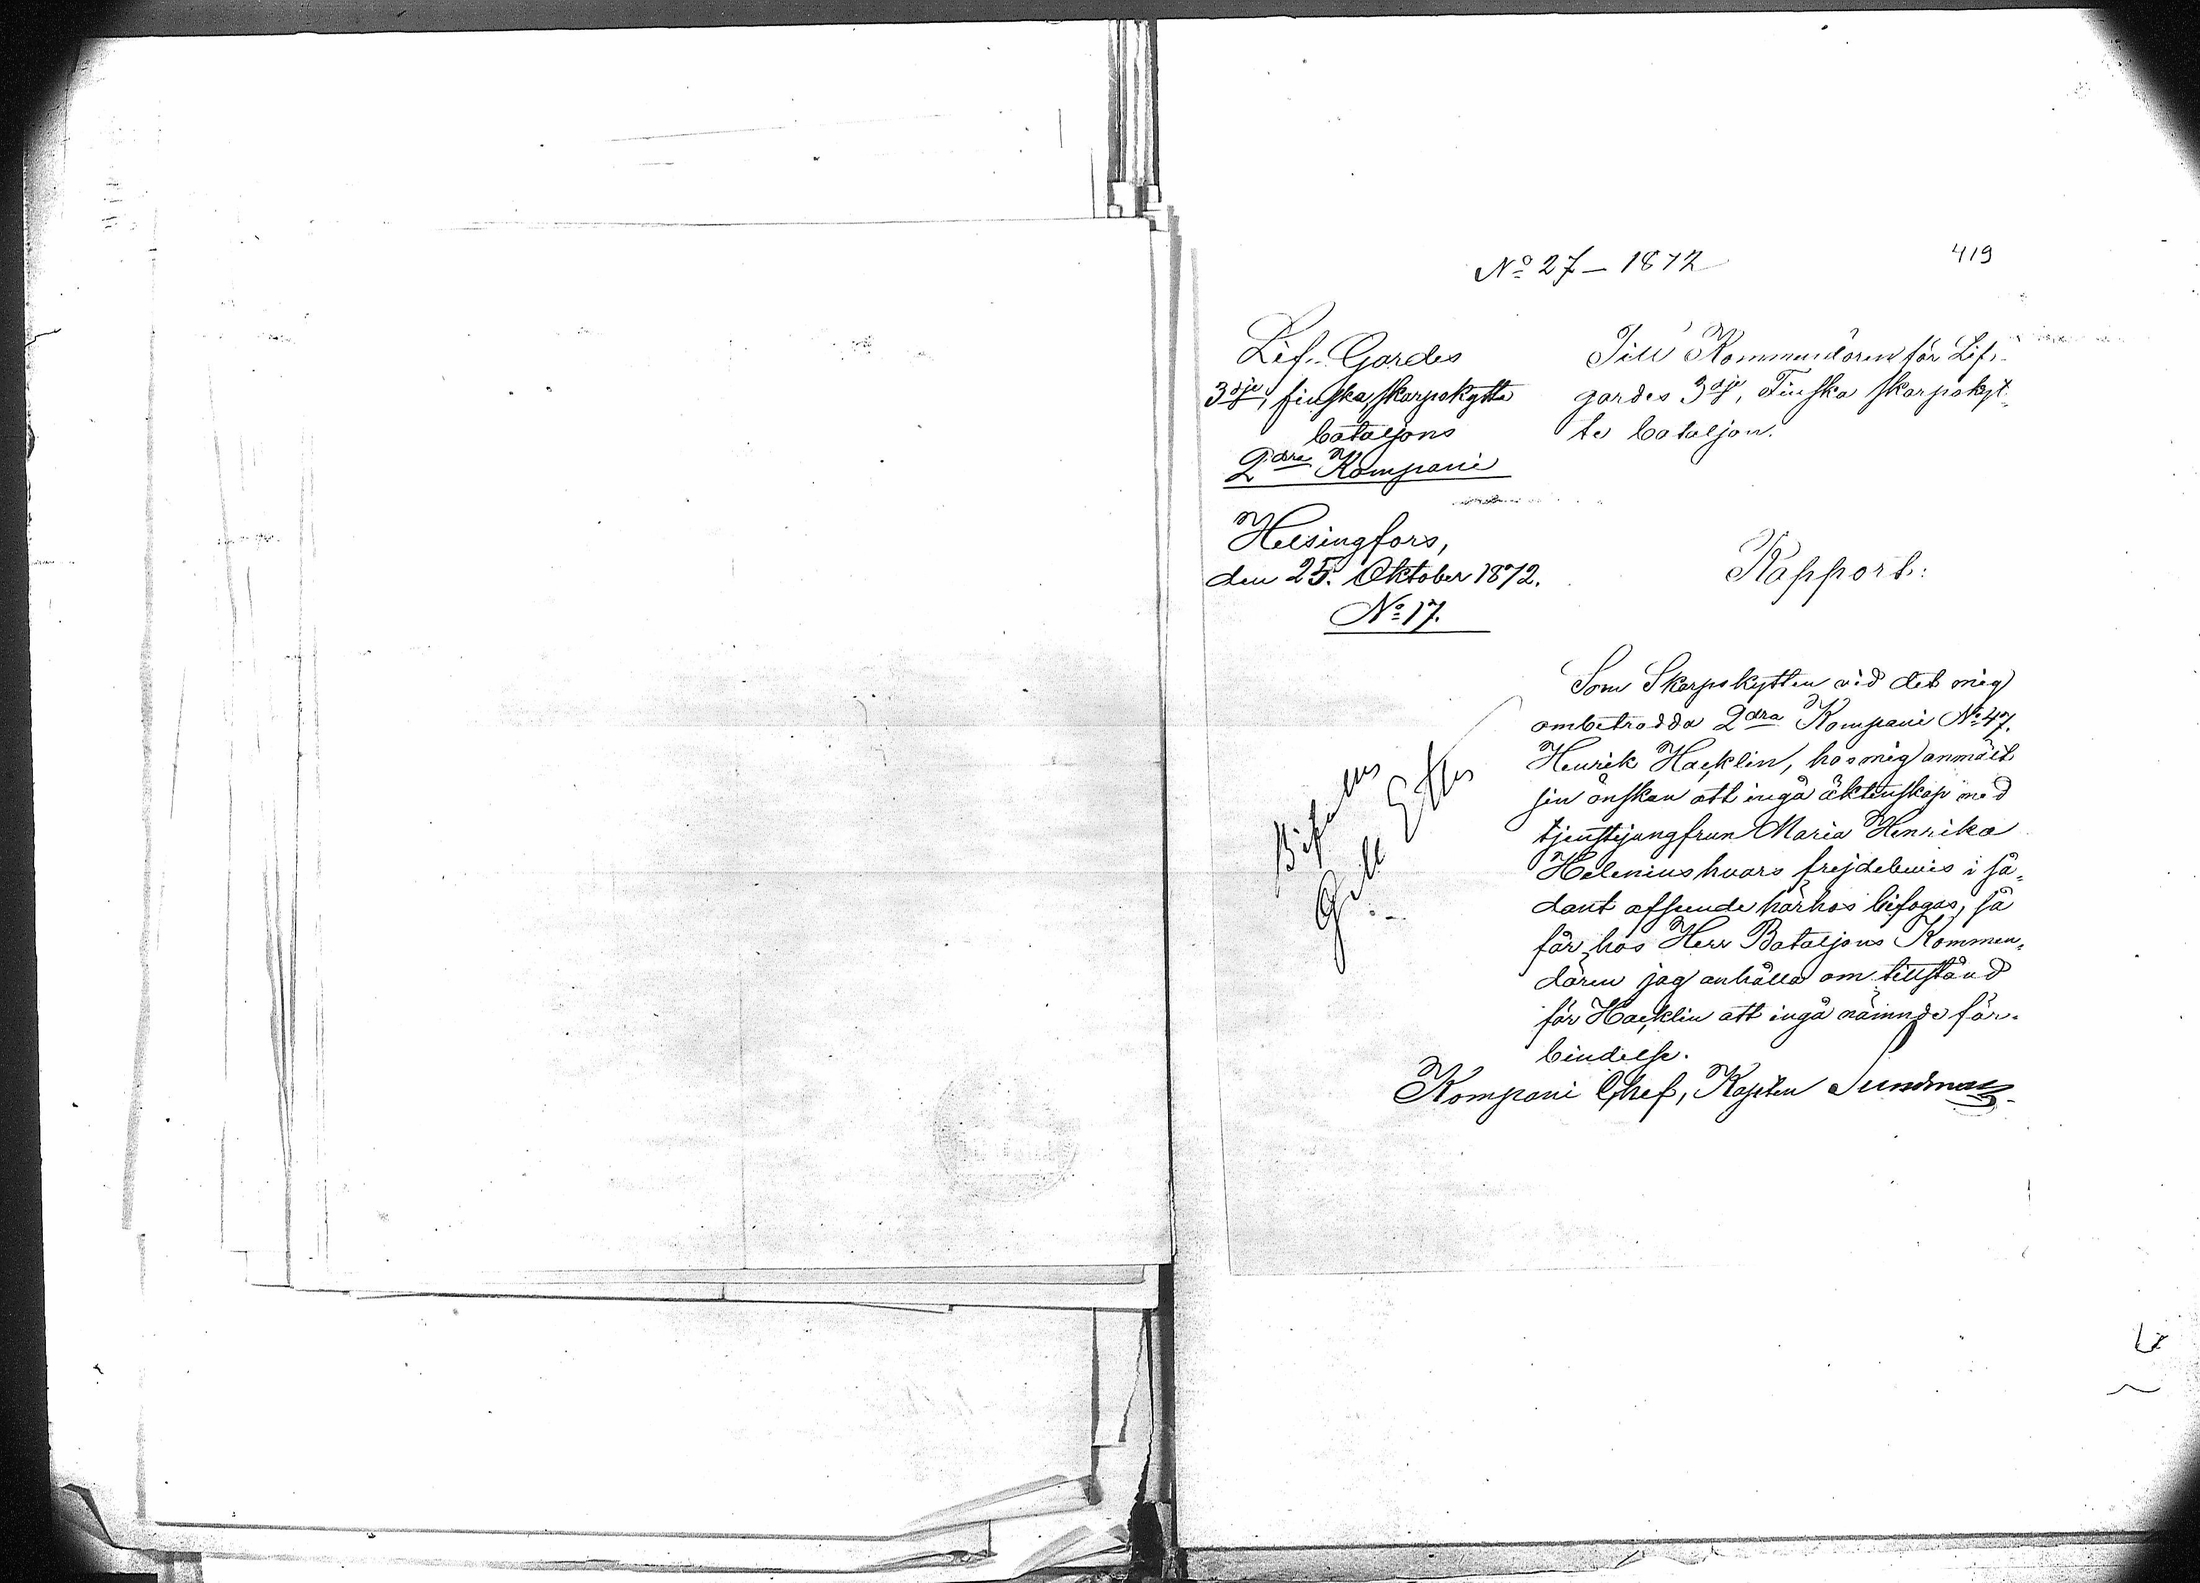 No 27 – 1872
419
Lif-Gardes
3dje, finska skarpskytte
bataljons
2dra Kompani
Helsingfors,
den 25. Oktober 1872.
No 17.
Till Kommendören för Lif-
gardes 3dje, Finska skarpskyt-
te bataljon.
Rapport:
Som Skarpskytten vid det mig
ombetrodda 2dra Kompani No 47.
Henrik Hacklin, hos mig anmält
sin önskan att ingå äktenskap med
tjenstejungfrun Maria Henrika
Helenius hvars frejdebevis i så-
dant afseende härhos bifogas, så
får hos Herr Bataljons Kommen-
dören jag anhålla om tillstånd
för Hacklin att ingå nämnde för-
bindelse.
Kompani Chef, Kapten Sundman
Bifalles